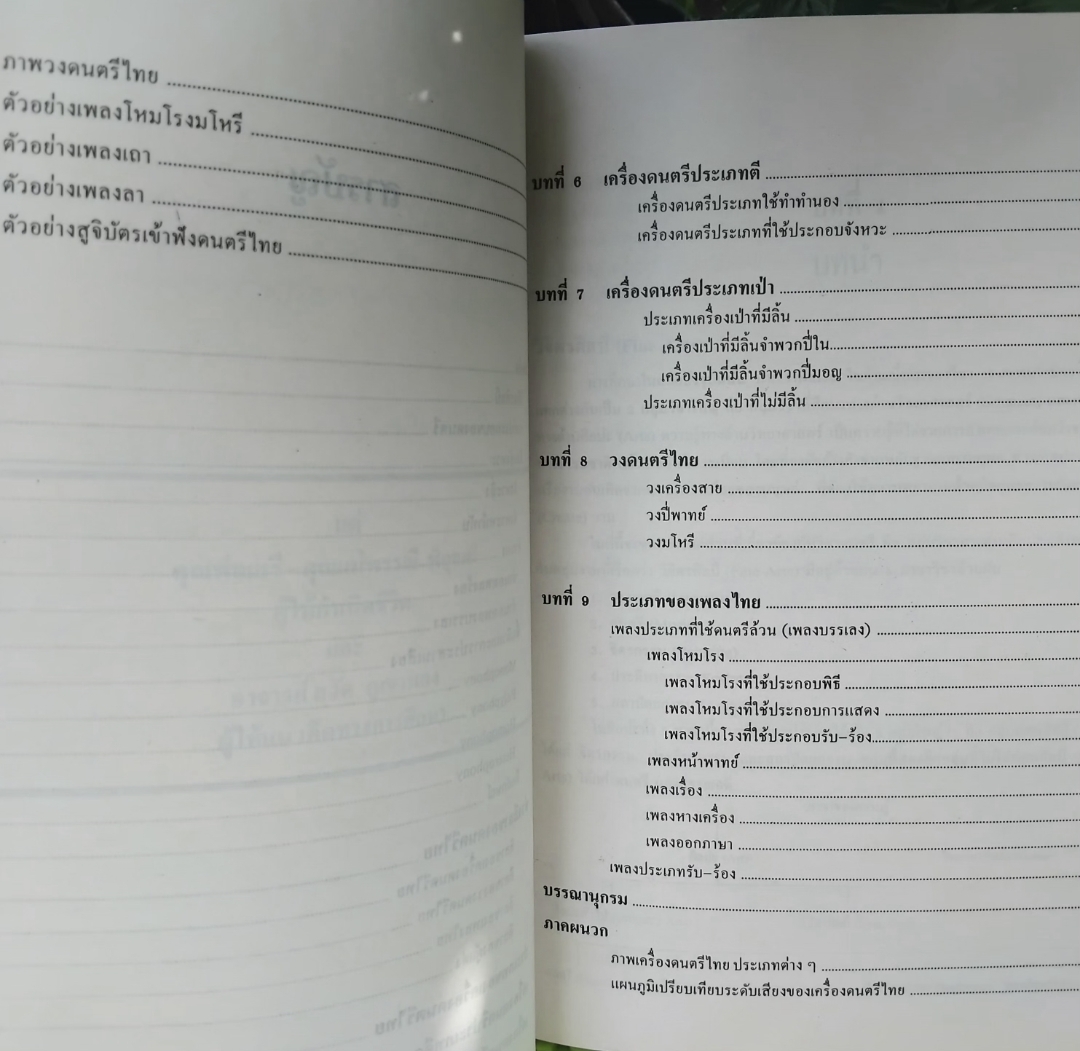 ภาพวงดนตรีไทย
ตัวอย่างเพลงโหมโรงมโหรี
ตัวอย่างเพลงเถา
ตัวอย่างเพลงลา
ตัวอย่างสูจิบัตรเข้าฟังดนตรีไทย
บทที่ 6 เครื่องดนตรีประเภทตี
เครื่องดนตรีประเภทใช้ทำทำนอง
เครื่องดนตรีประเภทที่ใช้ประกอบจังหวะ
บทที่ 7 เครื่องดนตรีประเภทเป่า
ประเภทเครื่องเป่าที่มีลิ้น
เครื่องเป่าที่มีลิ้นจำพวกปี่ใน
เครื่องเป่าที่มีลิ้นจำพวกปี่มอญ
ประเภทเครื่องเป่าที่ไม่มีลิ้น
บทที่ 8 วงดนตรีไทย
วงเครื่องสาย
วงปี่พาทย์
วงมโหรี
บทที่ 9 ประเภทของเพลงไทย
เพลงประเภทที่ใช้ดนตรีล้วน (เพลงบรรเลง)
เพลงโหมโรง
เพลงโหมโรงที่ใช้ประกอบพิธี
เพลงโหมโรงที่ใช้ประกอบการแสดง
เพลงโหมโรงที่ใช้ประกอบรับ-ร้อง
เพลงหน้าพาทย์
เพลงเรื่อง
เพลงหางเครื่อง
เพลงออกภาษา
เพลงประเภทรับ-ร้อง
บรรณานุกรม
ภาคผนวก
ภาพเครื่องดนตรีไทย ประเภทต่าง ๆ
แผนภูมิเปรียบเทียบระดับเสียงของเครื่องดนตรีไทย